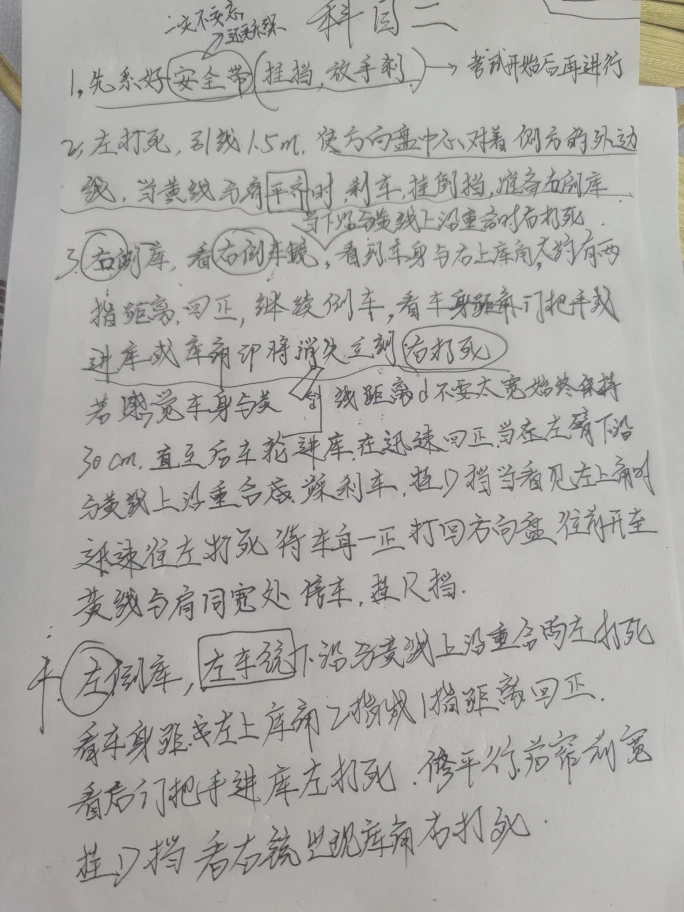 科目二
1,先系好安全带(挂挡,放手刹,)→考试开始后再进行
2,左打死,引线1.5m,使方向盘中心对着侧方的外边
线,当黄线与肩平齐时,刹车,挂倒挡,准备右倒库
当下沿与黄线上沿重合时右打死.
3.右倒库,看右倒车镜,看到车身与右上库角大约有两
指距离,回正,继续倒车,看车身距离门把手或
进库或库角即将消失立刻右打死
若感觉车身与黄线距离d不要太宽始终保持
30cm,直至后车轮进库,在迅速回正,当在左臂下沿
与黄线上沿重合底踩刹车,挂D挡当看见左上角时
迅速往左打死待车身一正打回方向盘往前开至
黄线与肩同宽处停车,挂R挡.
左倒库,左车镜下沿与黄线上沿重合两左打死
看车身距左上库角2指或1指距离回正.
看后门把手进库左打死.修平行.前窄前宽
挂D挡看右镜出现库角右打死.